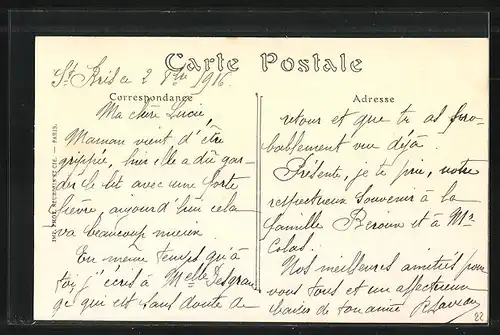 Carte Postale
St Bris ce 2 1916
Correspondance
Adresse
Ma chère Lucie,
Maman vient d'être
grippée, hier elle a dû gar-
der le lit avec une forte
fièvre, aujourd'hui cela
va beaucoup mieux
En même temps qu'à
toi, j'écris à Melle
ge qui est sans doute de
retour et que tu as pro-
bablement vu déjà.
Présente, je te prie, notre
respectueux souvenir à la
famille et à Mr
Colas.
Nos meilleures amitiés pour
vous tous et un affectueux
baiser de ton amie
22